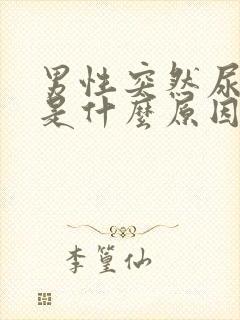 男性突然尿
是什麼原因
李篁仙